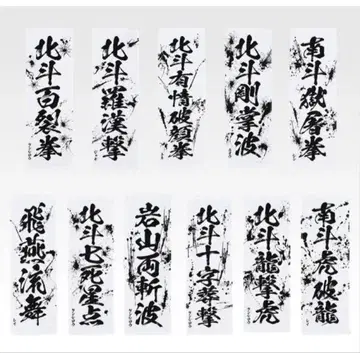 北斗百裂拳
北斗羅漢撃
北斗有情破顔拳
北斗剛掌波
南斗獄屠拳
飛燕流舞
北斗七死星点
岩山両斬波
北斗十字斬撃
北斗龍撃虎
南斗虎破龍